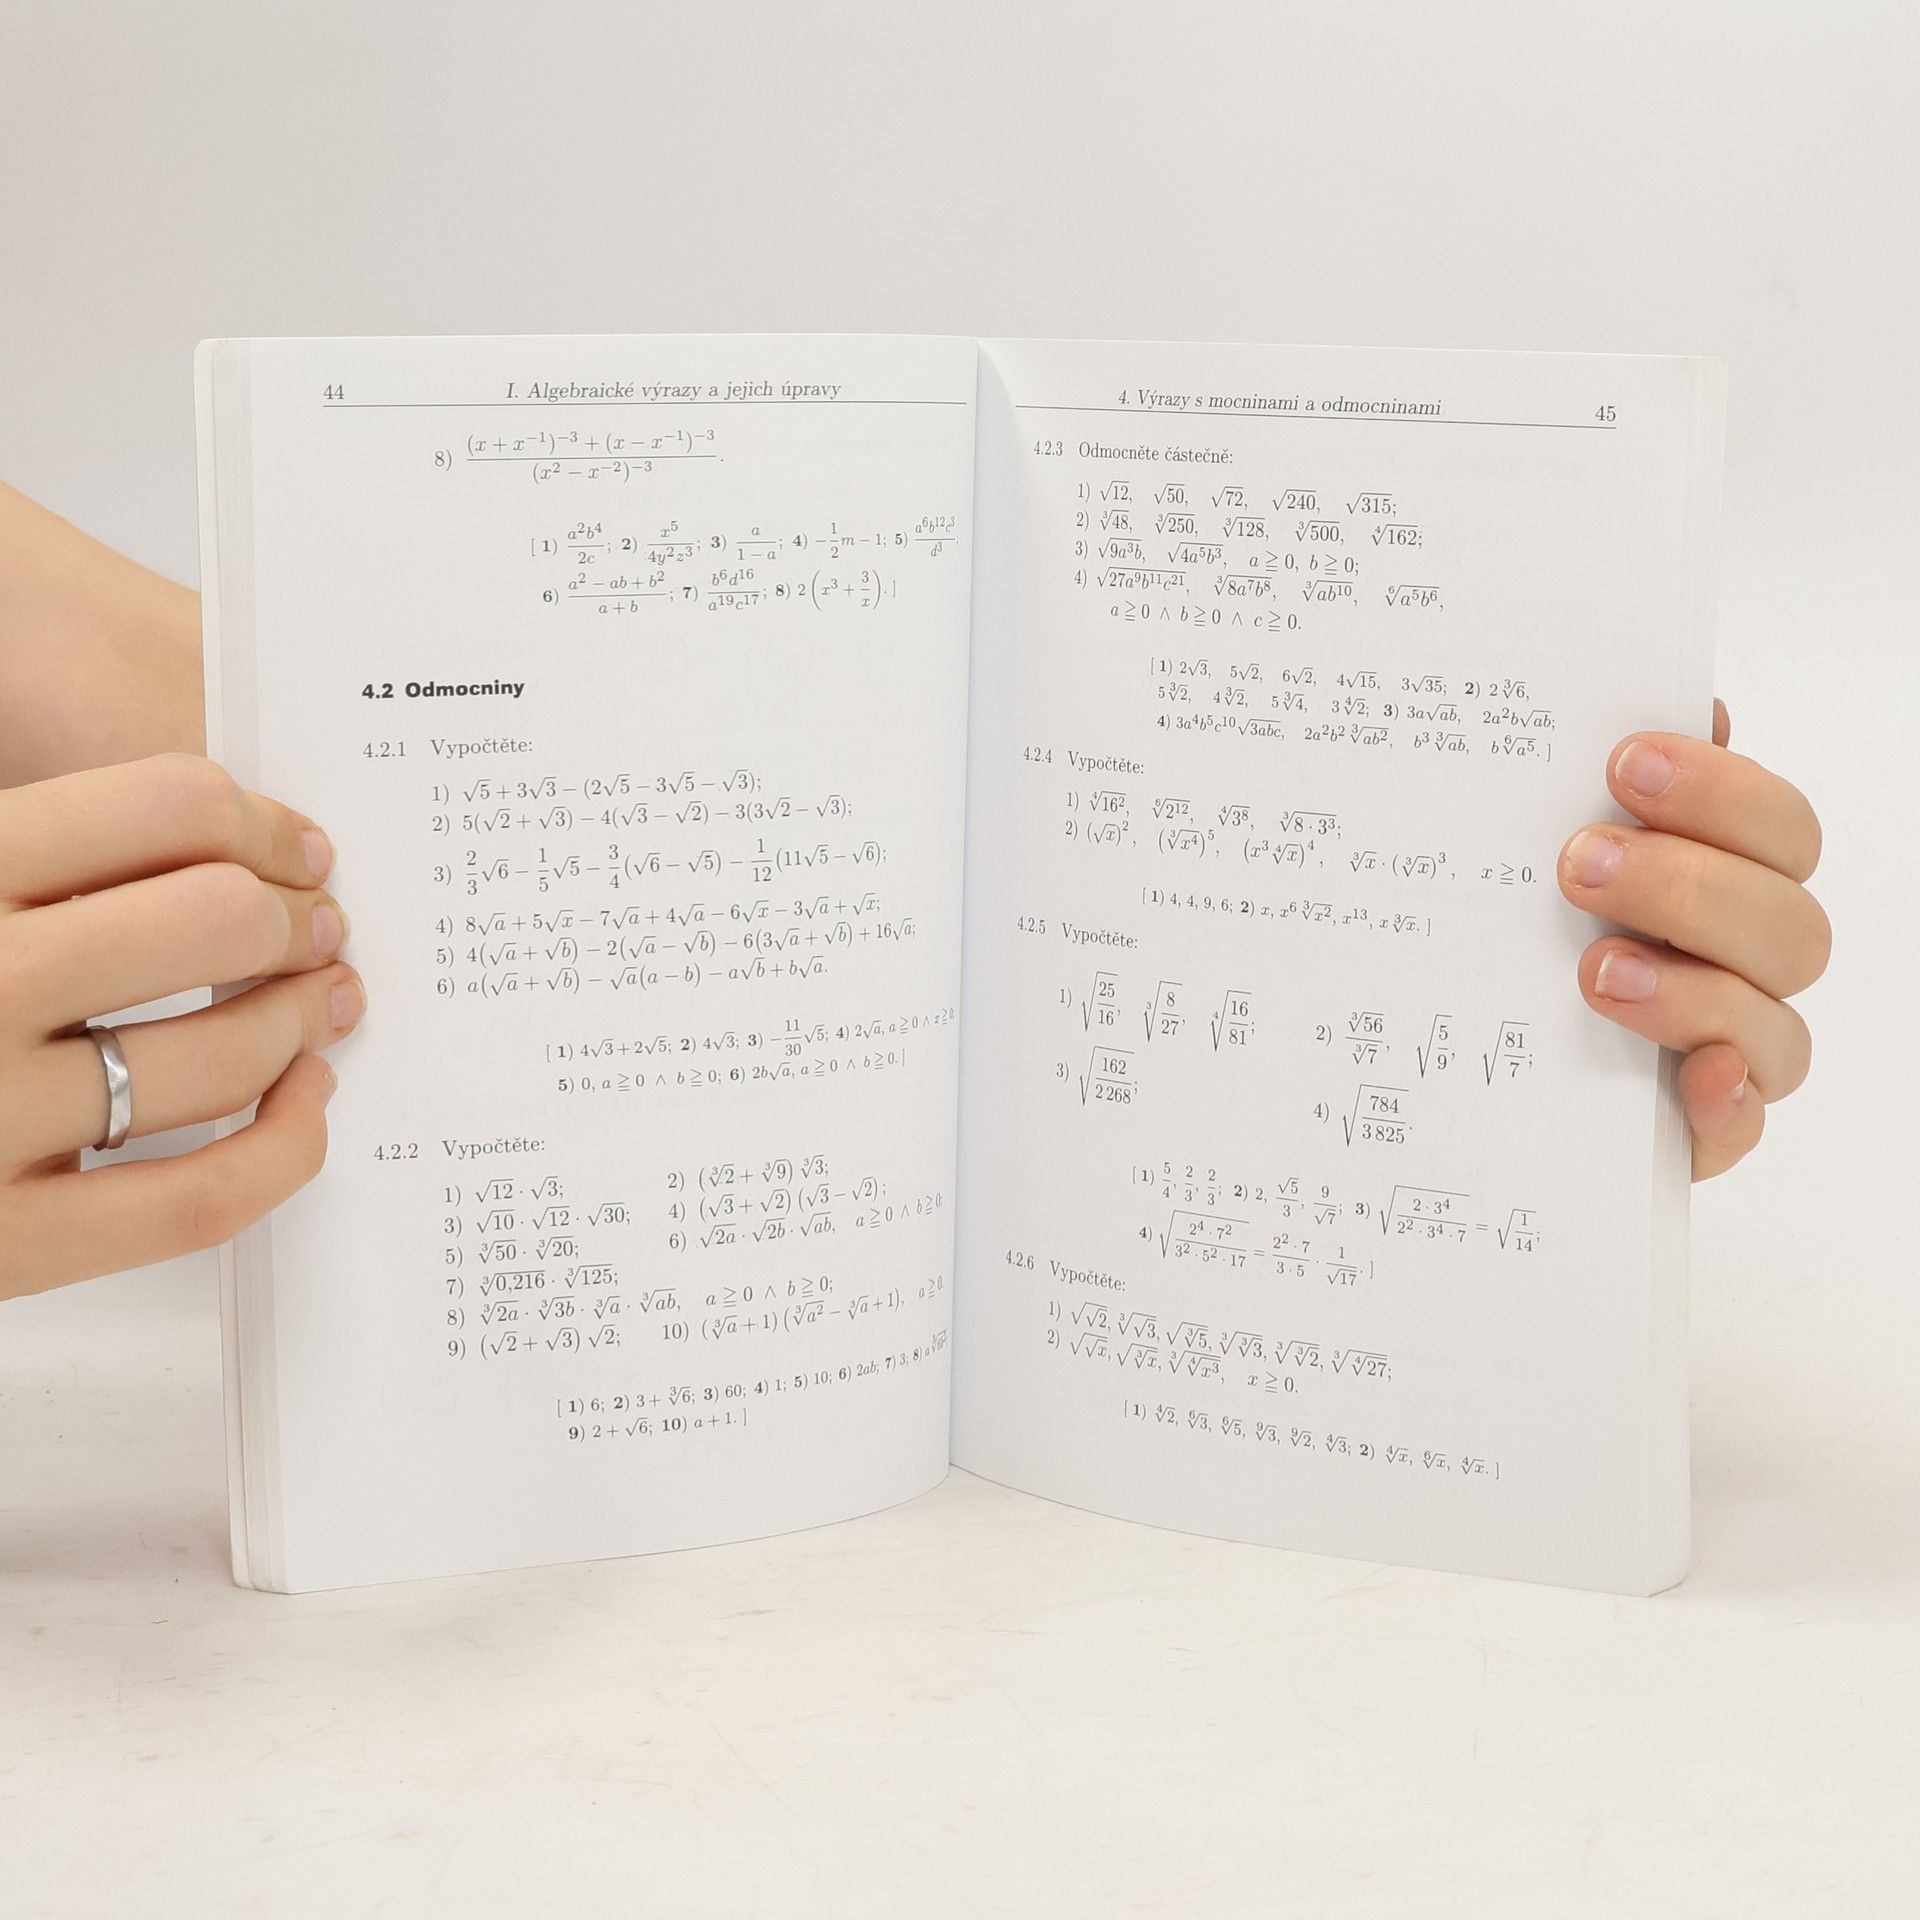 44 I. Algebraické výrazy a jejich úpravy
8) \frac{(x + x^{-1})^{-3} + (x − x^{-1})^{-3}}{(x^2 − x^{-2})^{-3}}.
[ 1) \frac{a^2b^4}{2c}; 2) \frac{x^5}{4y^2z^3}; 3) \frac{a}{1 − a}; 4) −\frac{1}{2}m − 1; 5) \frac{a^6b^{12}c^3}{d^3};
6) \frac{a^2 − ab + b^2}{a + b}; 7) \frac{b^6d^{16}}{a^{19}c^{17}}; 8) 2(x^3 + \frac{3}{x}). ]
4.2 Odmocniny
4.2.1 Vypočtěte:
1) √5 + 3√3 − (2√5 − 3√5 − √3);
2) 5(√2 + √3) − 4(√3 − √2) − 3(3√2 − √3);
3) \frac{2}{3}√6 − \frac{1}{5}√5 − \frac{3}{4}(√6 − √5) − \frac{1}{12}(11√5 − √6);
4) 8√a + 5√x − 7√a + 4√a − 6√x − 3√a + √x;
5) 4(√a + √b) − 2(√a − √b) − 6(3√a + √b) + 16√a;
6) a(√a + √b) − √a(a − b) − a√b + b√a.
[ 1) 4√3 + 2√5; 2) 4√3; 3) −\frac{11}{30}√5; 4) 2√a, a ≧ 0 ∧ x ≧ 0;
5) 0, a ≧ 0 ∧ b ≧ 0; 6) 2b√a, a ≧ 0 ∧ b ≧ 0. ]
4.2.2 Vypočtěte:
1) √12 · √3; 2) (∛2 + ∛9) ∛3;
3) √10 · √12 · √30; 4) (√3 + √2) (√3 − √2);
5) ∛50 · ∛20; 6) √{2a} · √{2b} · √{ab}, a ≧ 0 ∧ b ≧ 0;
7) ∛{0,216} · ∛125;
8) ∛{2a} · ∛{3b} · ∛a · ∛{ab}, a ≧ 0 ∧ b ≧ 0;
9) (√2 + √3) √2; 10) (∛a + 1) (∛{a^2} − ∛a + 1), a ≧ 0.
[ 1) 6; 2) 3 + ∛6; 3) 60; 4) 1; 5) 10; 6) 2ab; 7) 3; 8)
9) 2 + √6; 10) a + 1. ]
4. Výrazy s mocninami a odmocninami 45
4.2.3 Odmocněte částečně:
1) √12, √50, √72, √240, √315;
2) ∛48, ∛250, ∛128, ∛500, ∜162;
3) √{9a^3b}, √{4a^5b^3}, a ≧ 0, b ≧ 0;
4) √{27a^9b^{11}c^{21}}, ∛{8a^7b^8}, ∛{ab^{10}}, \sqrt[6]{a^5b^6},
a ≧ 0 ∧ b ≧ 0 ∧ c ≧ 0.
[ 1) 2√3, 5√2, 6√2, 4√15, 3√35; 2) 2∛6,
5∛2, 4∛2, 5∛4, 3∜2; 3) 3a√{ab}, 2a^2b√{ab};
4) 3a^4b^5c^{10}√{3abc}, 2a^2b^2∛{ab^2}, b^3∛{ab}, b\sqrt[6]{a^5}. ]
4.2.4 Vypočtěte:
1) ∜{16^2}, \sqrt[6]{2^{12}}, ∜{3^8}, ∛{8 · 3^3};
2) (√x)^2, (∛{x^4})^5, (x^3 ∜x)^4, ∛x · (∛x)^3, x ≧ 0.
[ 1) 4, 4, 9, 6; 2) x, x^6 ∛{x^2}, x^{13}, x ∛x. ]
4.2.5 Vypočtěte:
1) √{\frac{25}{16}}, ∛{\frac{8}{27}}, ∜{\frac{16}{81}}; 2) \frac{∛56}{∛7}, √{\frac{5}{9}}, √{\frac{81}{7}};
3) √{\frac{162}{2 268}}; 4) √{\frac{784}{3 825}}.
[ 1) \frac{5}{4}, \frac{2}{3}, \frac{2}{3}; 2) 2, \frac{√5}{3}, \frac{9}{√7}; 3) √{\frac{2 · 3^4}{2^2 · 3^4 · 7}} = √{\frac{1}{14}};
4) √{\frac{2^4 · 7^2}{3^2 · 5^2 · 17}} = \frac{2^2 · 7}{3 · 5} · \frac{1}{√17}. ]
4.2.6 Vypočtěte:
1) √{√2}, ∛{√3}, √{∛5}, ∛{∛3}, ∛{∛2}, ∛{∜27};
2) √{√x}, √{∛x}, ∛{∜{x^3}}, x ≧ 0.
[ 1) ∜2, \sqrt[6]{3}, \sqrt[6]{5}, \sqrt[9]{3}, \sqrt[9]{2}, ∜3; 2) ∜x, \sqrt[6]{x}, ∜x. ]